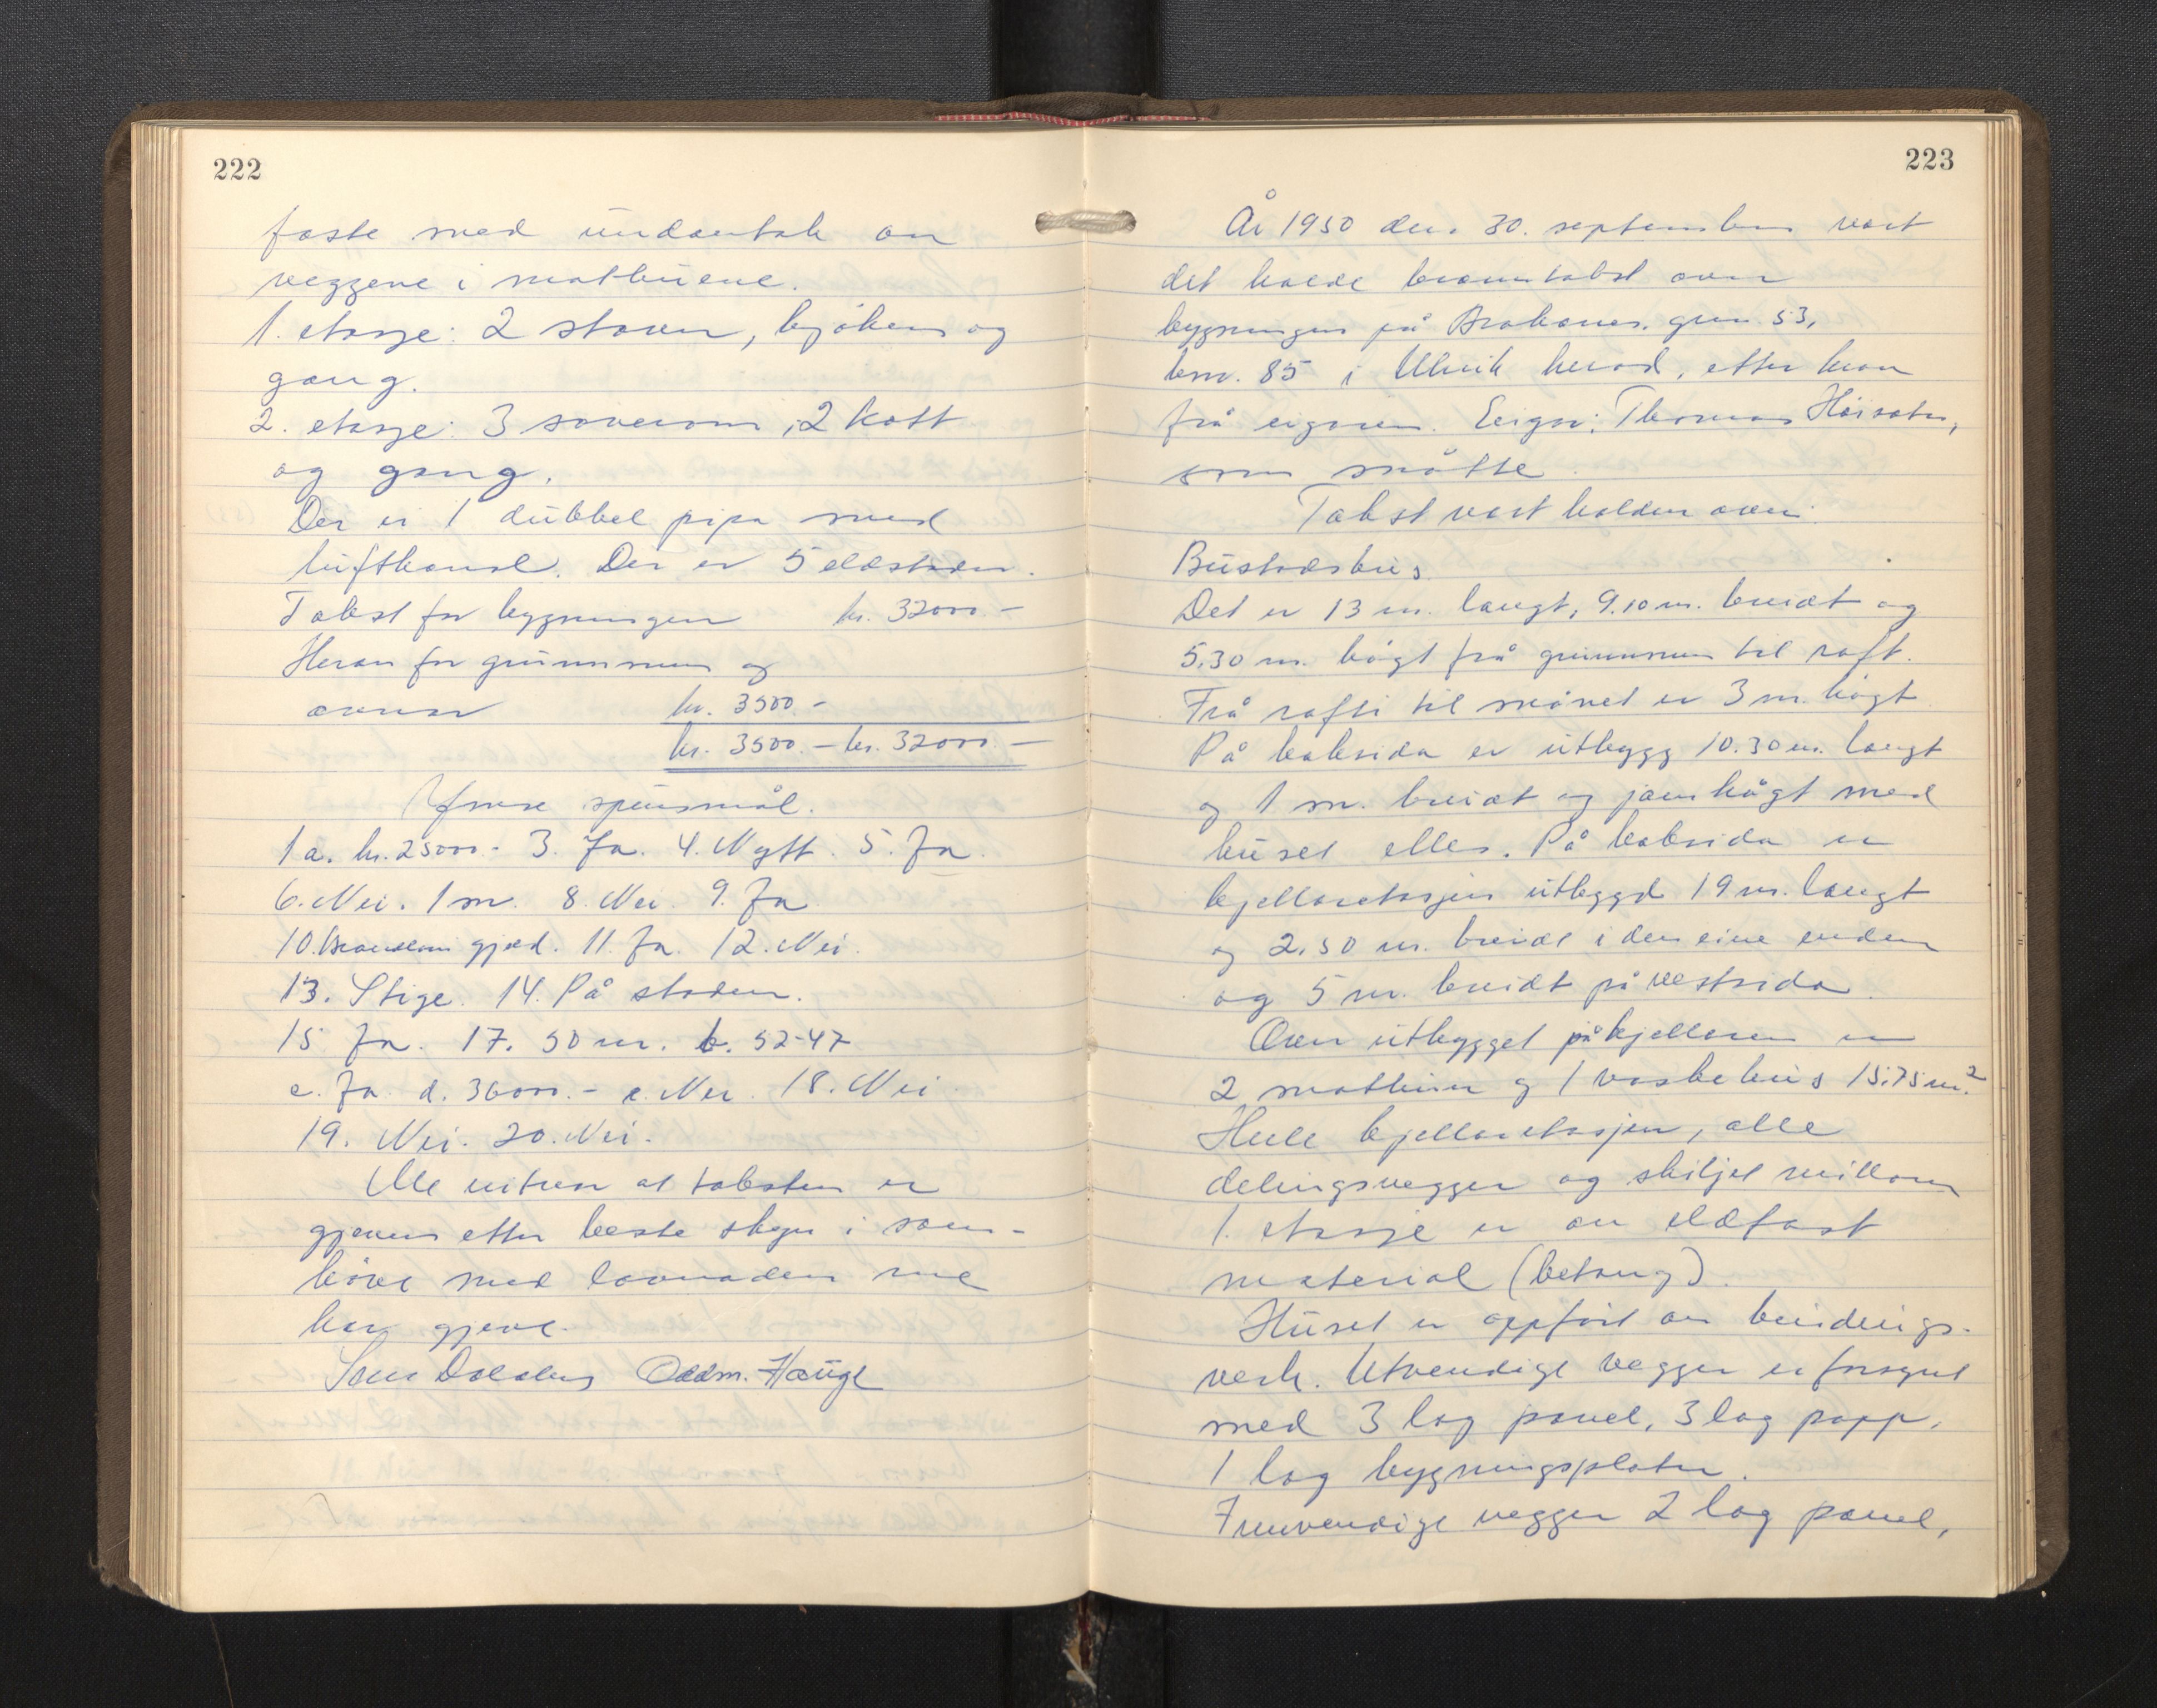 222
faste med undantak av
veggene i matbuene.
1. etasje: 2 stover, kjøken og
gang.
2. etasje: 3 soverom, 2 kott
og gang.
Der er 1 dubbel pipa med
luftkanal. Der er 5 eldstader.
Takst for bygningen kr. 32000.-
Herav for grunnmur og
ovner kr. 3500.-
kr. 3500.- kr. 32000.-
Ymse spursmål.
1a. kr. 25000.- 3. Ja. 4. Nytt. 5. Ja.
6. Nei. 1 m. 8. Nei. 9. Ja.
10. gjerd. 11. Ja. 12. Nei.
13. Stige. 14. På staden.
15 Ja. 17. 50 m. b. 52-47
c. Ja d. 36000.- e. Nei. 18. Nei.
19. Nei. 20. Nei.
Me vitnar at taksten er
gjeven etter beste skyn i sam-
høve med lovnaden me
har gjeve.
Oddm. Hauge
223
År 1950 den 30. september vart
det halde branntakst over
bygningen på Brakanes. gnr. 53,
bnr. 85 i Ulvik herad, etter krav
frå eigaren. Eigar: Thomas Håisæter,
som møtte.
Takst vart halden over:
Bustadshus
Det er 13 m. langt, 9.10 m. breidt og
5,30 m. høgt frå grunnmur til raft.
Frå rafti til mønet er 3 m. høgt.
På baksida er utbygg 10.30 m. langt
og 1 m. breidt og jamhøgt med
huset elles. På baksida er
kjellaretasjen utbygd 19 m. langt
og 2,50 m. breidt i den eine enden
og 5 m. breidt på vestsida.
Over utbygget på kjellaren er
2 matbuer og 1 vaskehus 15.75 m.²
Heile kjellaretasjen, alle
delingsvegger og skiljet millom
1. etasje er av eldfast
material (betong).
Huset er oppført av bindings-
verk. Utvendige vegger er forsynt
med 3 lag panel, 3 lag papp,
1 lag bygningsplater.
Innvendige vegger 2 lag panel,